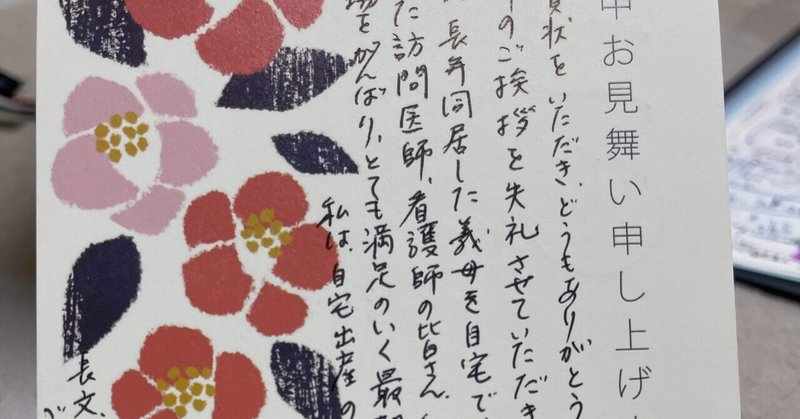 中お見舞い申し上げ
状をいただき、どうもありがとう
のご挨拶を失礼させていただき
長年同居した義母を自宅で
た訪問医師、看護師の皆さん
をがんばり、とても満足のいく最
私は、自宅出産の
長文、